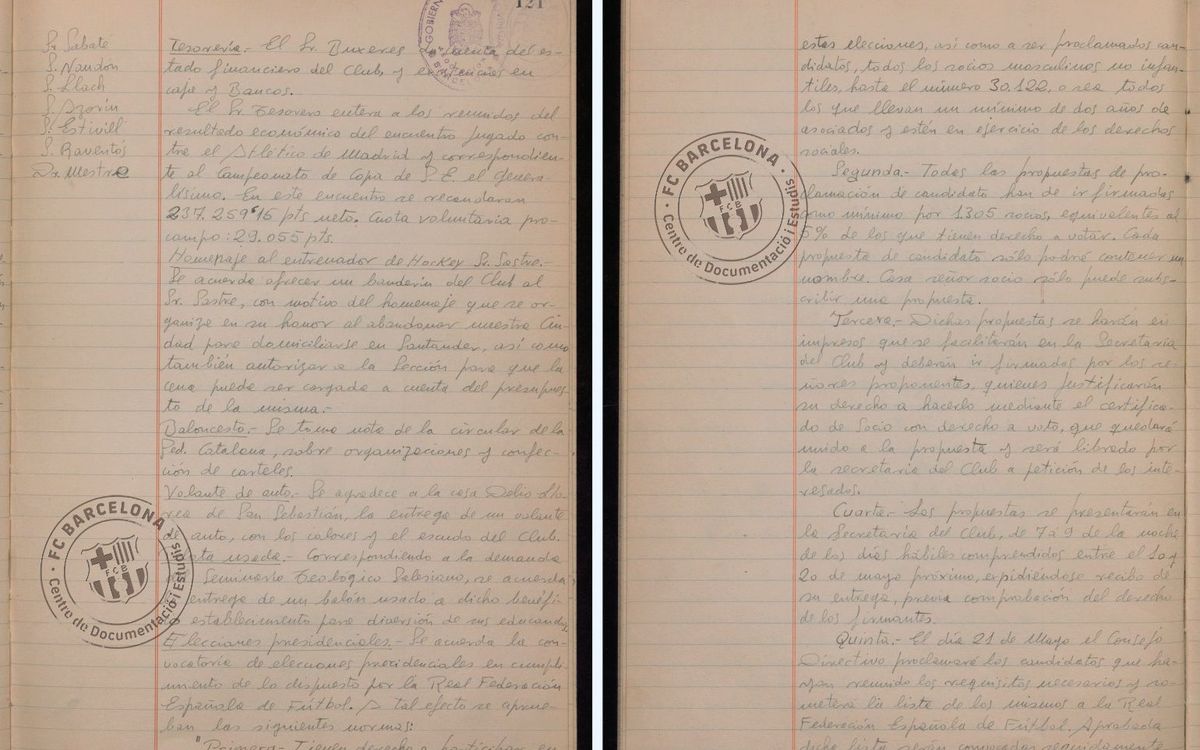 121
GOBIERNO
Sr. Sabaté
S. Naudón
S. Llach
S. Azorín
S. Estivill
S. Raventós
Dr. Mestre
Tesorería.- El Sr. Buxeres da cuenta del es-
tado financiero del Club, y existencias en
caja y Bancos.
El Sr. Tesorero entera a los reunidos del
resultado económico del encuentro jugado con-
tra el Atlético de Madrid y correspondien-
te al Campeonato de Copa de S.E. el Genera-
lísimo. En este encuentro se recaudaran
237.259'15 pts neto. Cuota voluntaria pro-
campo: 29.055 pts.
Homenaje al entrenador de Hockey Sr. Sastre.-
Se acuerda ofrecer un banderín del Club al
Sr. Sastre, con motivo del homenaje que se or-
ganiza en su honor al abandonar nuestra Ciu-
dad para domiciliarse en Santander, así como
también autorizar a la Sección para que la
cena pueda ser cargada a cuenta del presupues-
to de la misma.-
Baloncesto.- Se toma nota de la circular de la
Fed. Catalana, sobre organizaciones y confec-
ción de carteles.
Volante de auto.- Se agradece a la casa Delio
de San Sebastián, la entrega de un volante
de auto, con los colores y el escudo del Club.
usada.- Correspondiendo a la demanda
Seminario Teológico Salesiano, se acuerda
entrega de un balón usado a dicho benéfi-
establecimiento para diversión de sus educandos.
Elecciones presidenciales.- Se acuerda la con-
vocatoria de elecciones presidenciales en cumpli-
miento de lo dispuesto por la Real Federación
Española de Fútbol. A tal efecto se aprue-
ban las siguientes normas:
"Primera.- Tienen derecho a participar en
FC BARCELONA
FCB
Centre de Documentació i Estudis
estas elecciones, así como a ser proclamados can-
didatos, todos los socios masculinos no infan-
tiles, hasta el número 30.122, o sea todos
los que llevan un mínimo de dos años de
asociados y estén en ejercicio de los derechos
sociales.
Segunda.- Todas las propuestas de pro-
clamación de candidato han de ir firmadas
como mínimo por 1305 socios, equivalentes al
5% de los que tienen derecho a votar. Cada
propuesta de candidato sólo podrá contener un
nombre. Casa señor socio sólo puede subs-
cribir una propuesta.
Tercera.- Dichas propuestas se harán en
impresos que se facilitarán en la Secretaría
del Club y deberán ir firmados por los se-
ñores proponentes, quienes justificarán
su derecho a hacerlo mediante el certifica-
do de Socio con derecho a voto, que quedará
unido a la propuesta y será librado por
la secretaría del Club a petición de los inte-
resados.
Cuarta.- Las propuestas se presentarán en
la Secretaría del Club, de 7 á 9 de la noche
de los días hábiles comprendidos entre el 10 y
20 de mayo próximo, expidiéndose recibo de
su entrega, previa comprobación del derecho
de los firmantes.
Quinta.- El día 21 de Mayo el Consejo
Directivo proclamará los candidatos que ha-
yan reunido los requisitos necesarios y so-
meterá la lista de los mismos a la Real
Federación Española de Fútbol. Aprobada
dicha lista serán convocados
FC BARCELONA
FCB
Centre de Documentació i Estudis